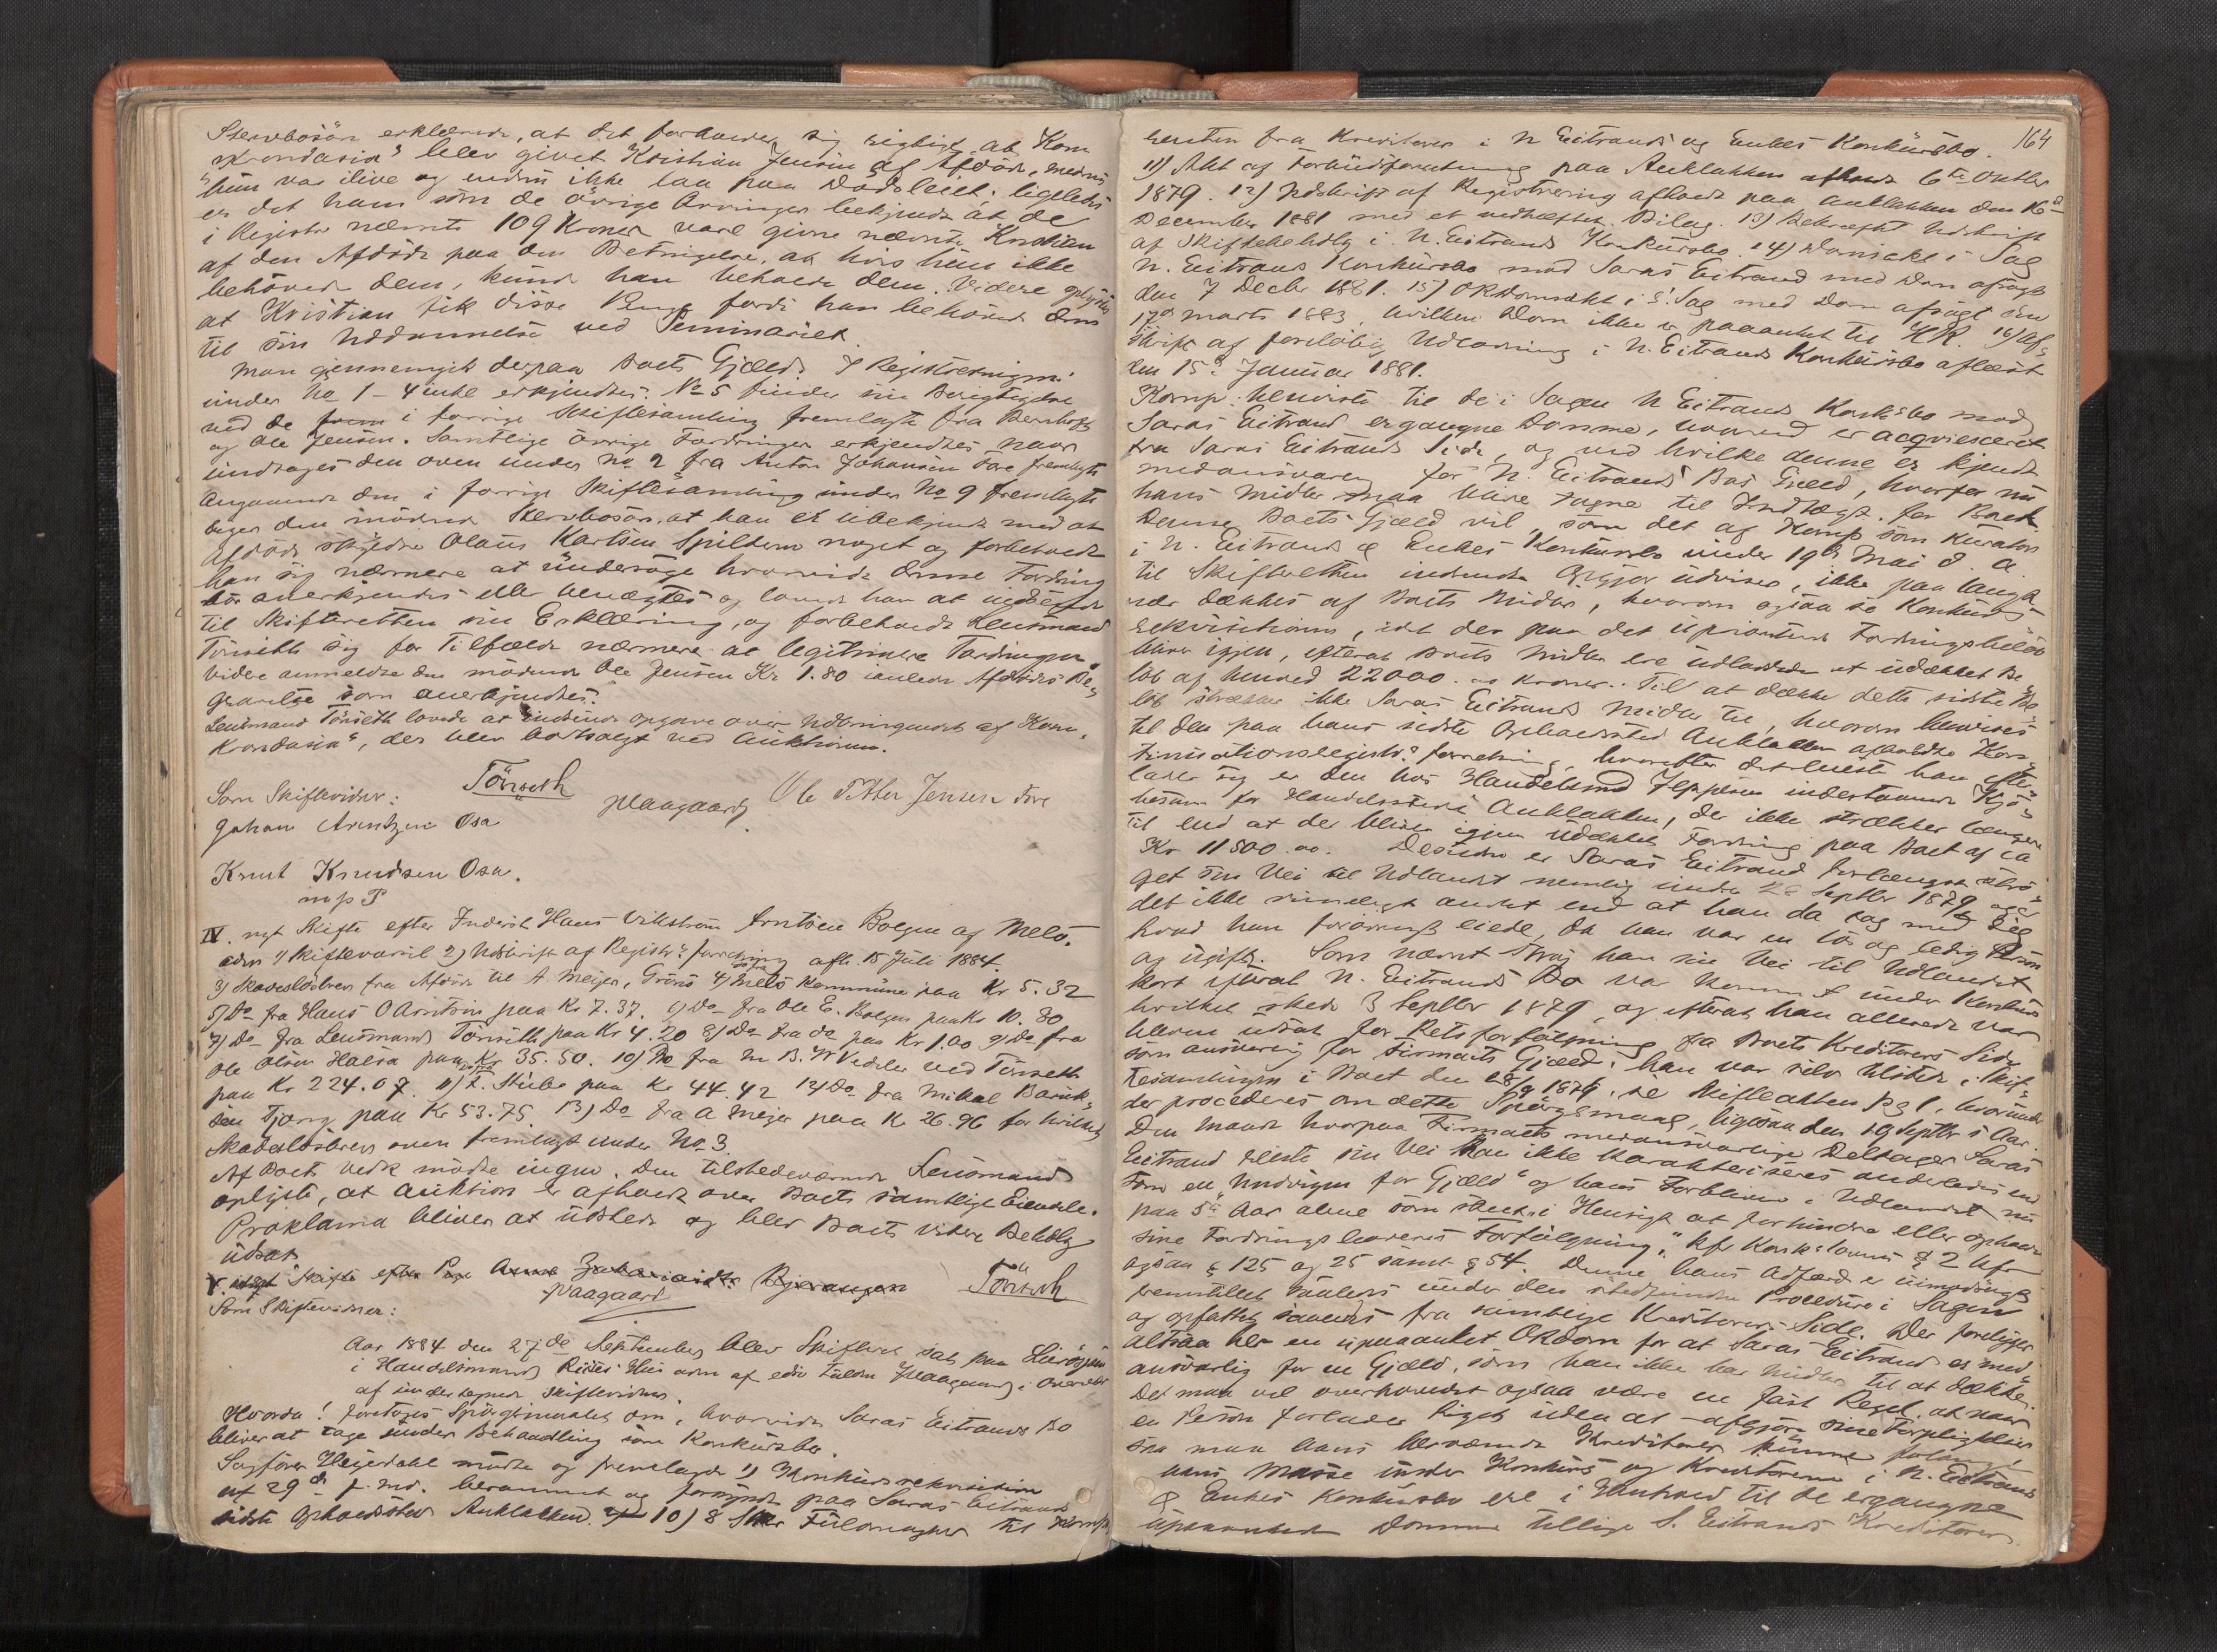 Stervbosön erklærede, at det forholder sig rigtigt at Kom
"Krondasia" blev givet Kristian Jensen af Afdöde, medens
hun var ilive og endnu ikke laa paa Dödsleiet. ligeledes
er det ham som de övrige Arvinger bekjendt at de
i Registr nævnte 109 Kroner vare givne nævnte Kristian
af den Afdöde paa den Betingelse, at hvis hun ikke
behövede dem, kunde han beholde dem. Videre oplystes
at Kristian fik disse Penge fordi han behövede dem
til sin Uddannelse ved Seminariet.
Man gjennemgik derpaa Boets Gjæld. I Registreringen
under No 1 – 4 incl erkjendtes. No 5 finder sin Berigtigelse
ved de i forrige Skiftesamling fremlagte fra Bernhoft
og Ole Jensen. Samtlige övrige Fordringer erkjendtes naar
undtages den oven under No 2 fra Anton Johansen Töre fremlagte
Angaaende den i forrige Skiftesamling under No 9 fremlagte
siger den mödende Stervbosön, at han er ubekjendt med at
Afdöde skyldte Olaus Karlsen Spildern noget og forbeholdt
han sig nærmere at undersöge hvorvidt denne Fordring
bör anerkjendes eller benægtes og lovede han at indsende
til Skifteretten sin Erklæring, og forbeholdt Lensmand
Tönseth sig for Tilfælde nærmere at legitimere Fordringen.
Videre anmeldte den mödende Ole Jensen Kr 1.80 i anledn Afdödes Be-
gravelse som anerkjendtes.
Lensmand Tönseth lovede at indsende opgave over Udbringendet af Kom.
Krondasia", der blev bortsolgt ved Auktionen.
Som Skiftevidner: Tönseth Maagaard Ole Petter Jensen Töre
Johan Arentzen Osa
Knut Knudsen Osa.
m/p P
IV. nyt Skifte efter Inderst Hans Vikström Arntsen Bolgen af Melö.
1) Skiftevarsel 2) Udskrift af Registr: forretning afh. 15 Juli 1884.
3) Skadeslösbrev fra Afdöde til A. Meijer, Tromsö 4) Melö Kommune paa Kr 5.32
5) Do fra Hans O Arntsen paa Kr 7.37. 6) Do fra Ole E. Bolgen paa Kr 10.80
7) Do fra Lensmand Tönseth paa Kr 4.20 8) Do fra do paa Kr 1.00 9) Do fra
Ole Olsen Halsa paa Kr 35.50. 10) Do fra M B. W Vedeler ved Tönseth
paa Kr 224.07. 11) F. Stub paa Kr 44.42 12) Do fra Mikal Barok-
sen Tjong paa Kr 53.75 13) Do fra A Meijer paa Kr 26.96 for hvilket
Skadeslösbrev oven fremlagt under No 3.
Af Boets Vedk mödte ingen. Den tilstedeværende Lensmand
oplyste, at Auktion er afholdt over Boets samtlige Eiendele.
Proklama bliver at udstede og blev Boets videre Behdlg
udsat
V. Skifte efter Anna Zakariasd: Tönseth
Maagaard
Som Skiftevidner:
Aar 1884 den 27de September blev Skifteret sat paa
i Handelsmand Hus adm af edsv Fuldm Maagaard i overvær
af undertegnede Skiftevidner.
Hvorda! foretoges Spörgsmaalet om, hvorvidt Saras Eitrands Bo
bliver at tage under Behandling som Konkursbo.
Sagförer Heijerdahl mödte og fremlagde 1) Konkursrekvisition
af 29de f. md. berammet og forkyndt paa Saras Eitrands
sidste Opholdssted Auklakken. 10) 8 Stkr Fuldmagter til Komp
164
senten fra Kreditorer i N Eitrands og Enkes Konkursbo.
11) Akt af Forbudforretning paa Auklakken afholdt 6te Oktbr
1879. 12) Udskrift af Registrering afholdt paa Auklakken den 16de
December 1881 med et vedhæftet Bilag. 13) Bekræftet Udskrift
af Skiftebehdlg i N. Eitrands Konkursbo. 14) Domsakt i Sag
N. Eitrands Konkursbo mod Saras Eitrand med Dom afsagt
den 7 Decbr 1881. 15) ORDomsakt i s! Sag med Dom afsagt den
17de Marts 1883, hvilken Dom ikke er paaanket til HR. 16) Af-
skrift af foreløbig Udlodning i N. Eitrands Konkursbo aflæst
den 15de Januar 1881.
Komp. henviste til de i Sagen N Eitrands Konksbo mod
Saras Eitrand ergangne Domme, hvorved er acqviesceret
fra Saras Eitrands Side, og ved hvilke denne er kjendt
medansvarlig for N. Eitrands Bos Gjæld, hvorfor nu
hans Midler maa blive tagne til Indtægt for Boet.
Denne Boets Gjæld vil, som det af Komp som Kurator
i N. Eitrands & Enkes Konkursbo under 19de Mai d. A.
til Skifteretten indsendte Opgjør udviser, ikke paa langt
nær dækkes af Boets Midler, hvorom ogsaa se Konkurs-
rekvisitionen, idet der paa det uprioriterede Fordringsbelöb
bliver igjen, efterat Boets Midler ere udloddede et udækket Be-
löb af henved 22000.00 Kroner. Til at dække dette sidste Be-
löb strækker ikke Saras Eitrands Midler til, hvorom henvises
til den paa hans sidste Opholdssted Auklakken afholdte Kon-
registr: forretning, hvorefter det eneste han efter-
lader sig er den hos Handelsmd Jeppesen indestaaende Kjö-
besum for Handelsstedet Auklakken, der ikke strækker længere
til end at der bliver igjen udækket Fordring paa Boet af ca
Kr 11500.00. Desuden er Saras Eitrand forlængst strö-
get sin Vei til Udlandet nemlig under 26 Septbr 1879 og er
det ikke rimeligt andet end at han da tog med sig
hvad han forövrigt eiede, da han var en lös og ledig Person
og ugift. Som nævnt strög han sin Vei til Udlandet
kort efterat N. Eitrands Bo var kommet under Konkurs
hvilket skede 3 Septbr 1879, og efterat han allerede var
bleven udsat for Retsforfölgning fra Boets Kreditorers Side
som ansvarlig for Firmaets Gjæld. han var selv tilstede i Skif-
tesamlingen i Boet den 18/9 1879, se Skifteakten pg 1, hvorunder
der procederes om dette Spörgsmaal, ligesaa den 19 Septbr s Aar.
Den Maade hvorpaa Firmaets medansvarlige Deltager Saras
Eitrand reiste sin Vei kan ikke karakteriseres anderledes end
som en "Undvigen for Gjæld" og hans Forbliven i Udlandet nu
paa 5te Aar alene som skeet "i Hensigt at forhindre eller ophæve
sine Fordringshaveres Forfölgning", kfr Konk:lovens § 2
ogsaa § 125 og 25 samt § 54. Denne hans Adfærd er uimodsagt
fremstillet saaledes under den stedfundne Procedure i Sagen
og opfattet saaledes fra samtlige Kreditorers Side. Der foreligger
altsaa her en upaaanket ORdom for at Saras Eitrand er med-
ansvarlig for en Gjæld, som han ikke har Midler til at dække.
Det maa vel overhovedet ogsaa være en fast Regel, at naar
en Person forlader Riget uden at afgjöre sine Forpligtelser
saa maa hans herværende Kreditorer kunne forlange
hans Masse under Konkurs og Kreditorerne i N. Eitrands
& Enkes Konkursbo ere i Henhold til de ergangne
upaaankede Domme tillige S. Eitrands Kreditorer.